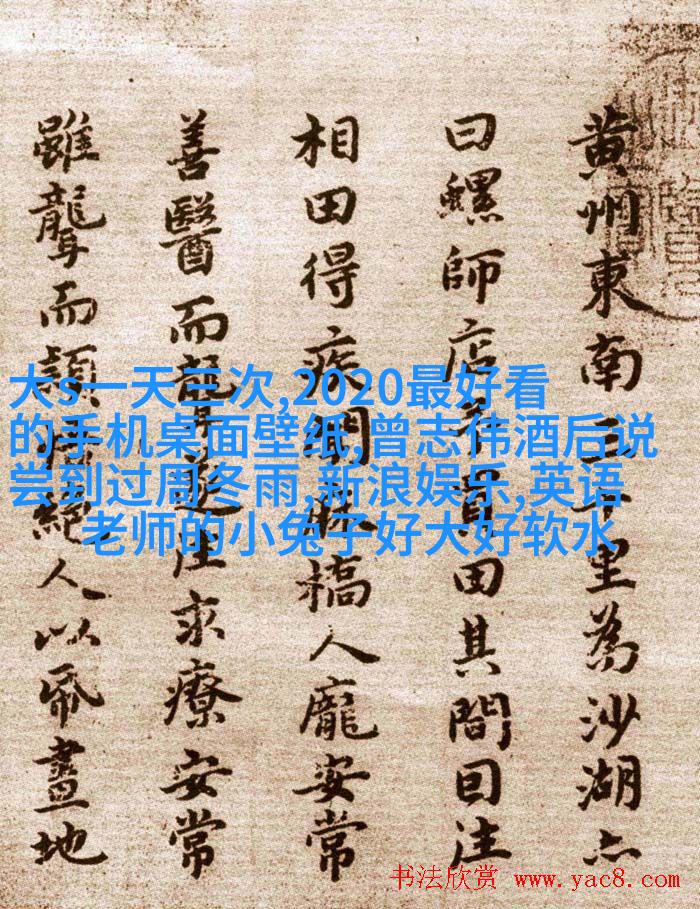 黄州東南三十里為沙湖亦
曰螺師店予買田其間因往
相田得疾聞麻橋人龐安常
善醫而聾遂往求療安常
雖聾而頴悟絕人以帋畫地
大s一天三次,2020最好看
的手机桌面壁纸,曾志伟酒后说
尝到过周冬雨,新浪娱乐,英语
老师的小兔子好大好软水
书法欣赏 www.yac8.com